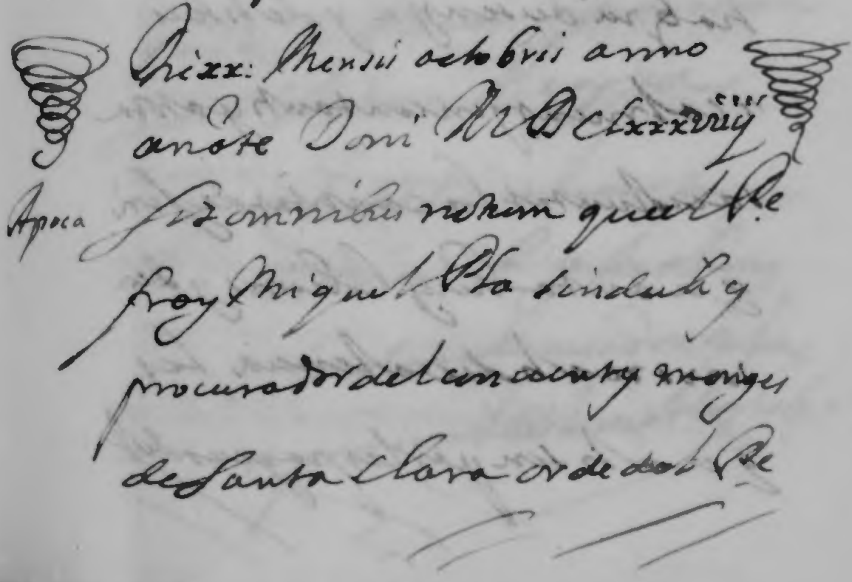 Die xx: Mensii octobrii anno
anõte Domi MDclxxxviiij
Apoca
Sit omnibus notum que el Pe
fray Miquel Pla sindich y
procurador del convent y monges
de Santa Clara orde del Pe